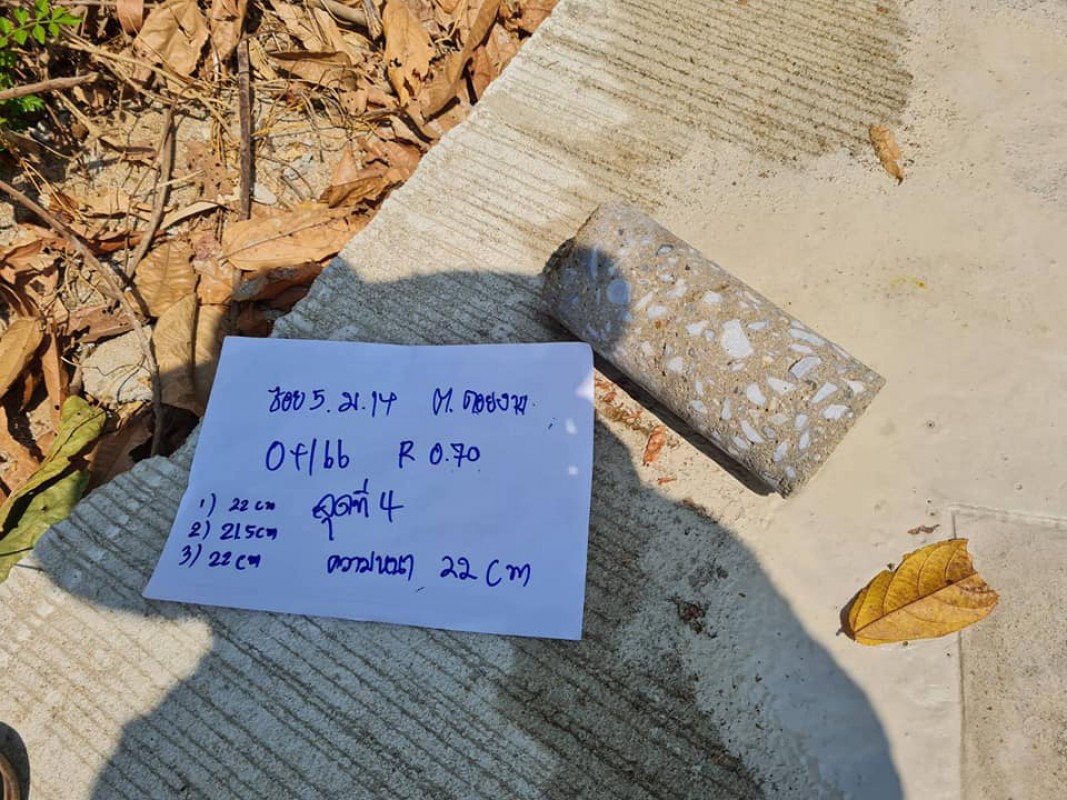 ซอย 5. ม.14 ต. ดอยงาม.
04/66 R 0.70
จุดที่ 4
1) 22 cm
2) 21.5cm
3) 22 cm
ความหนา 22 cm